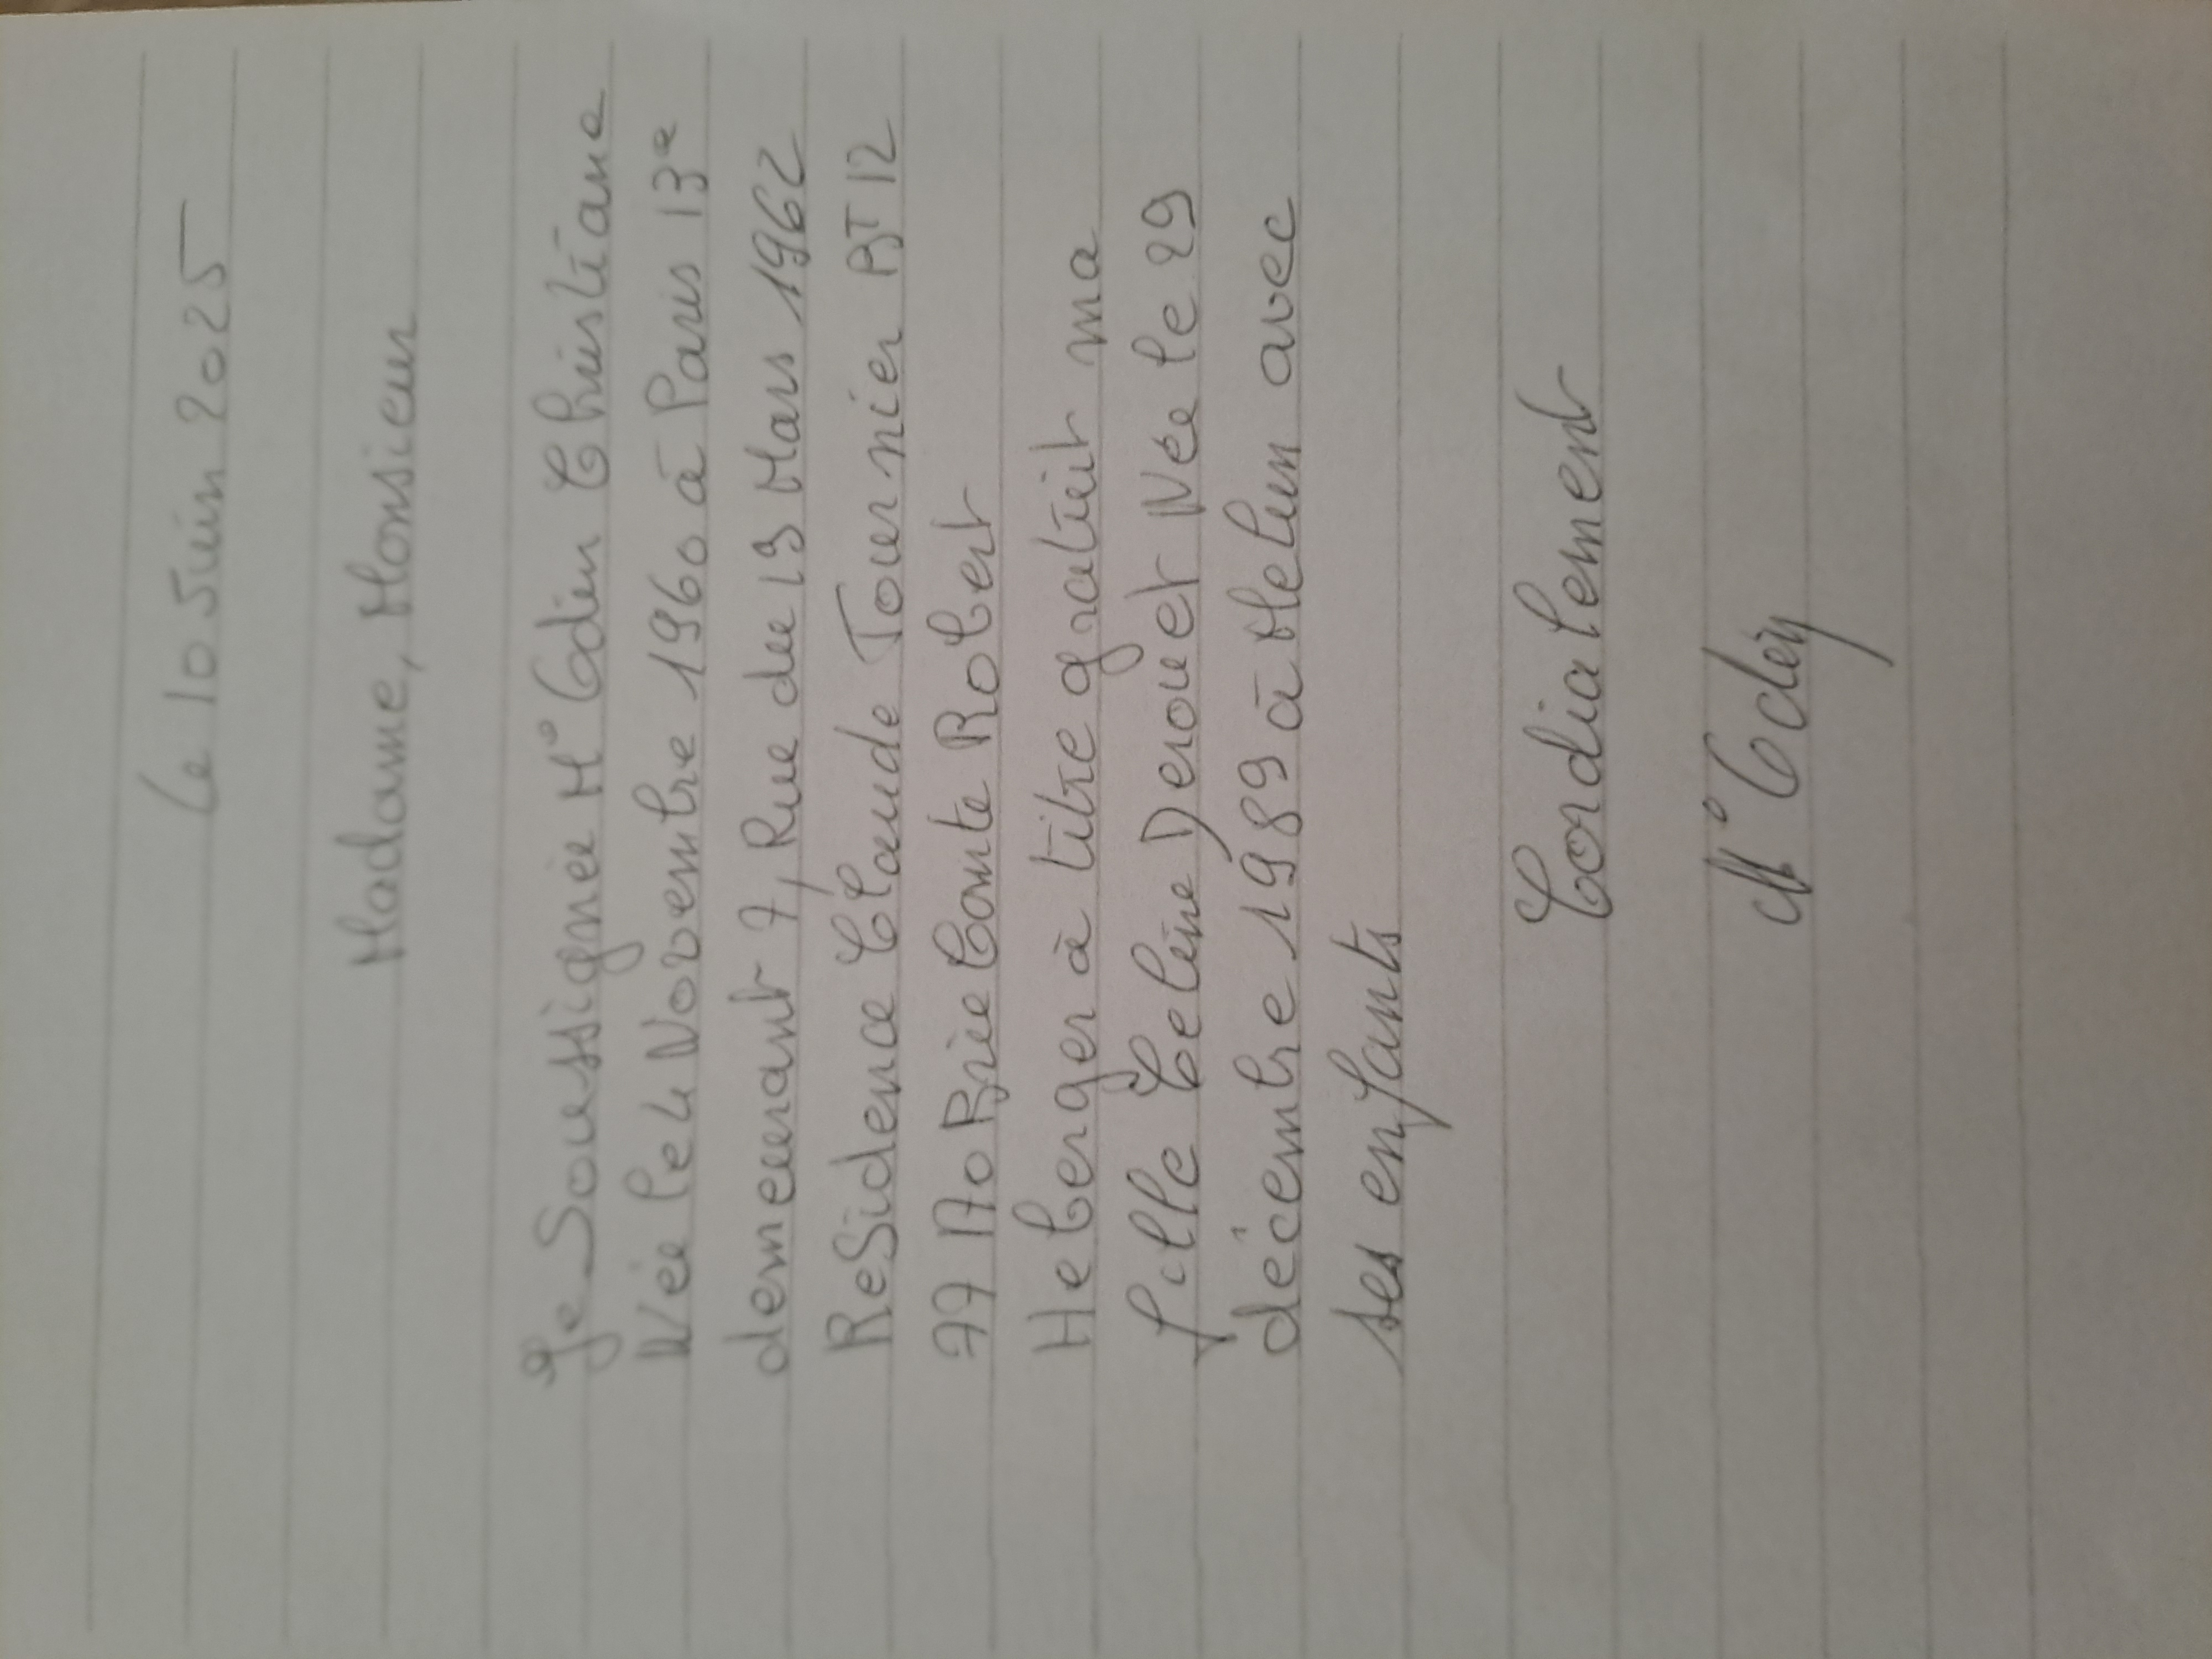 Le 10 Juin 2025
Madame, Monsieur
Je Soussignée Me Codin Christiane
Née le 4 Novembre 1960 à Paris 13e
demeurant 7, Rue du 19 Mars 1962
ReSidence Claude Tournier BT 12
77170 Brie Comte Robert
Heberger à titre gratuit ma
fille Celine Derouet Née le 29
décembre 1989 à Melun avec
ses enfants
Cordialement
Me